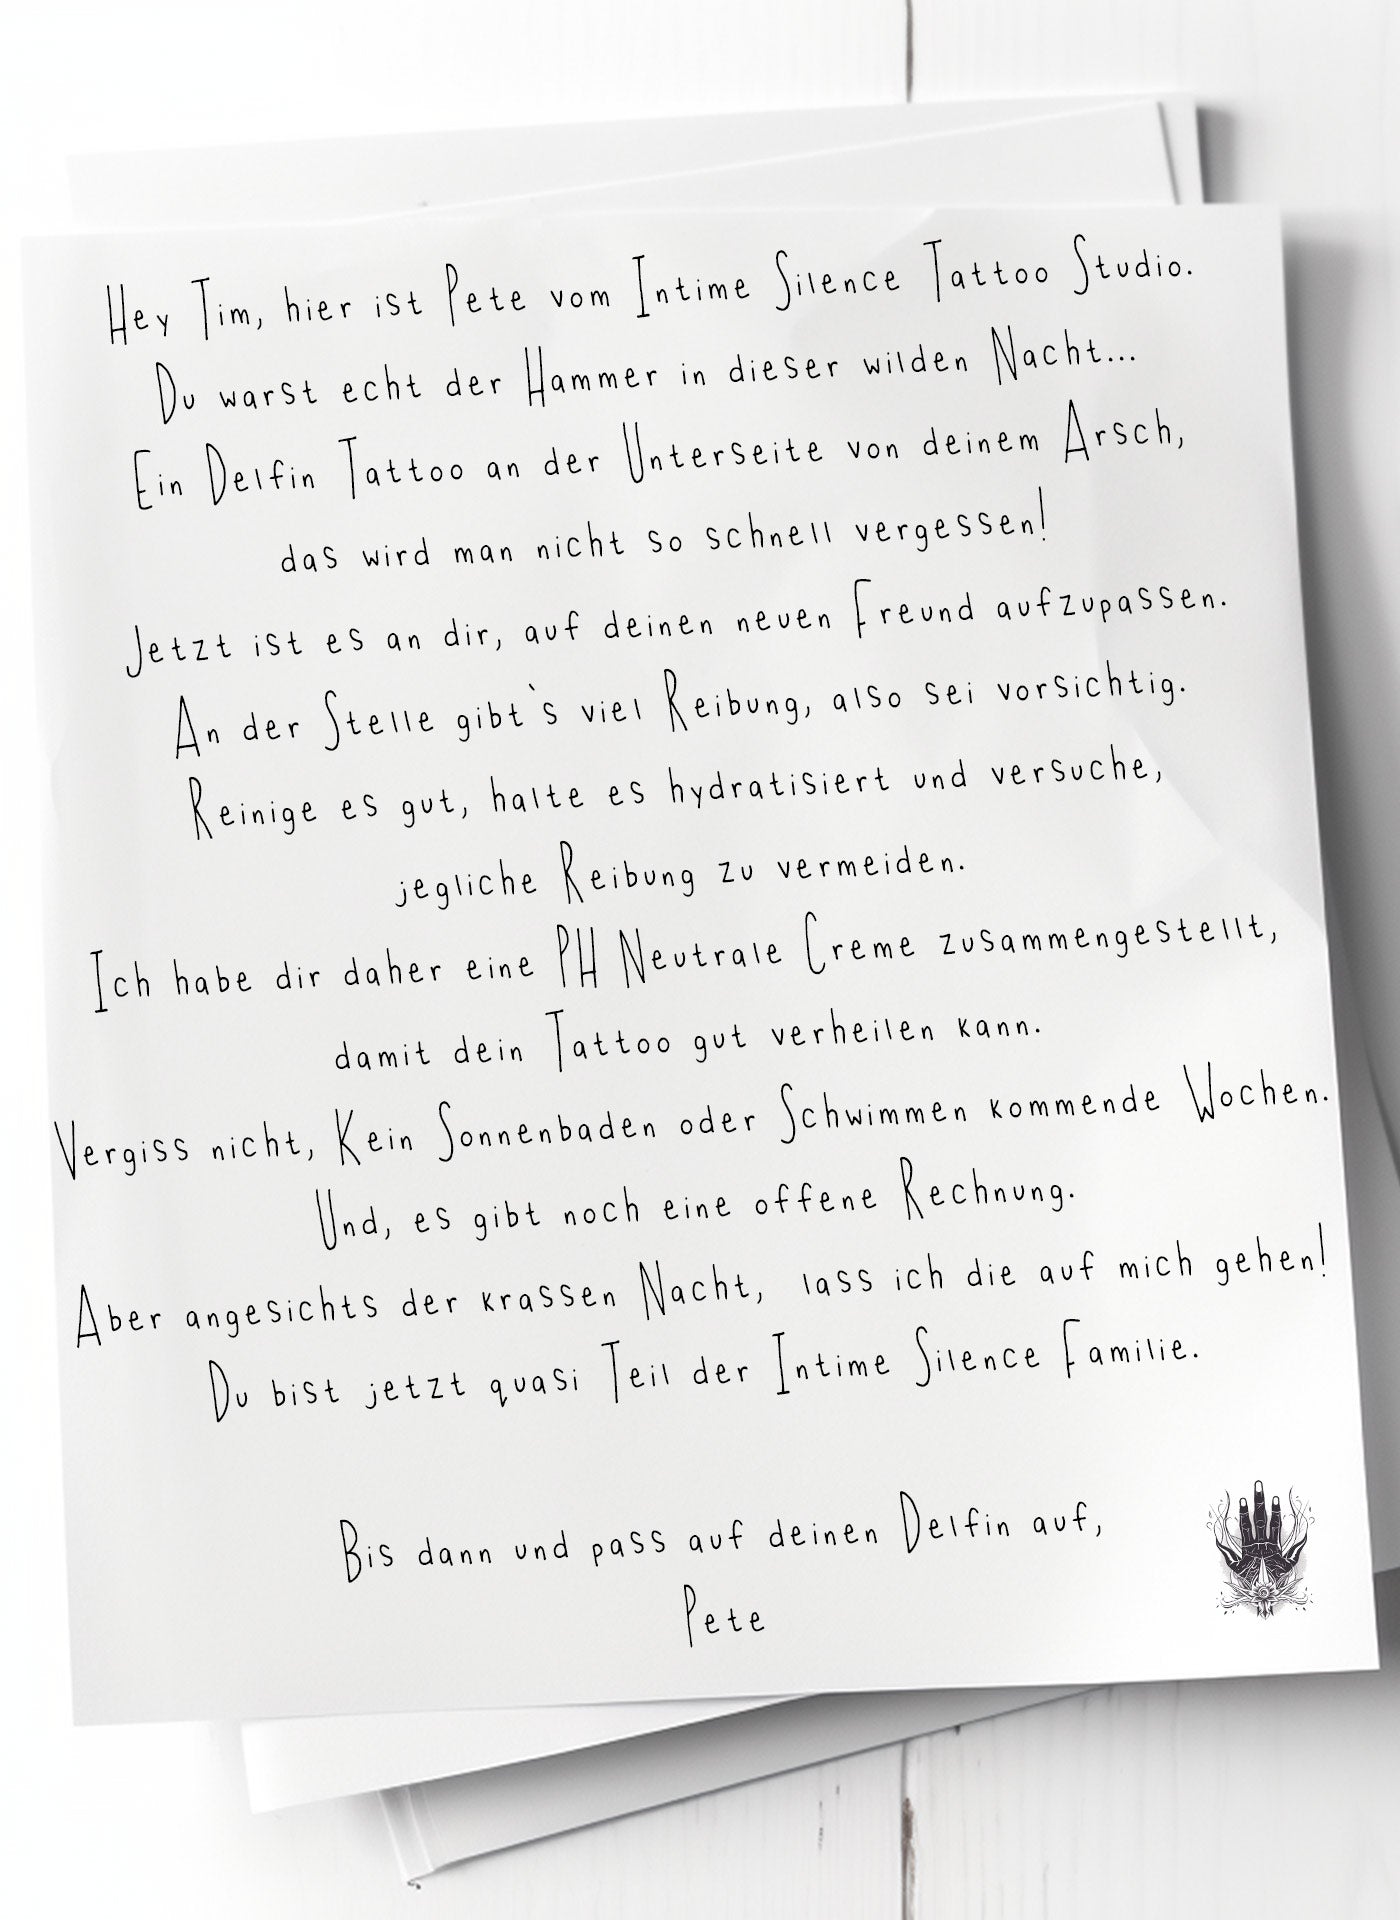 Hey Tim, hier ist Pete vom Intime Silence Tattoo Studio.
Du warst echt der Hammer in dieser wilden Nacht...
Ein Delfin Tattoo an der Unterseite von deinem Arsch,
das wird man nicht so schnell vergessen!
Jetzt ist es an dir, auf deinen neuen Freund aufzupassen.
An der Stelle gibt`s viel Reibung, also sei vorsichtig.
Reinige es gut, halte es hydratisiert und versuche,
jegliche Reibung zu vermeiden.
Ich habe dir daher eine PH Neutrale Creme zusammengestellt,
damit dein Tattoo gut verheilen kann.
Vergiss nicht, Kein Sonnenbaden oder Schwimmen kommende Wochen.
Und, es gibt noch eine offene Rechnung.
Aber angesichts der krassen Nacht, lass ich die auf mich gehen!
Du bist jetzt quasi Teil der Intime Silence Familie.
Bis dann und pass auf deinen Delfin auf,
Pete